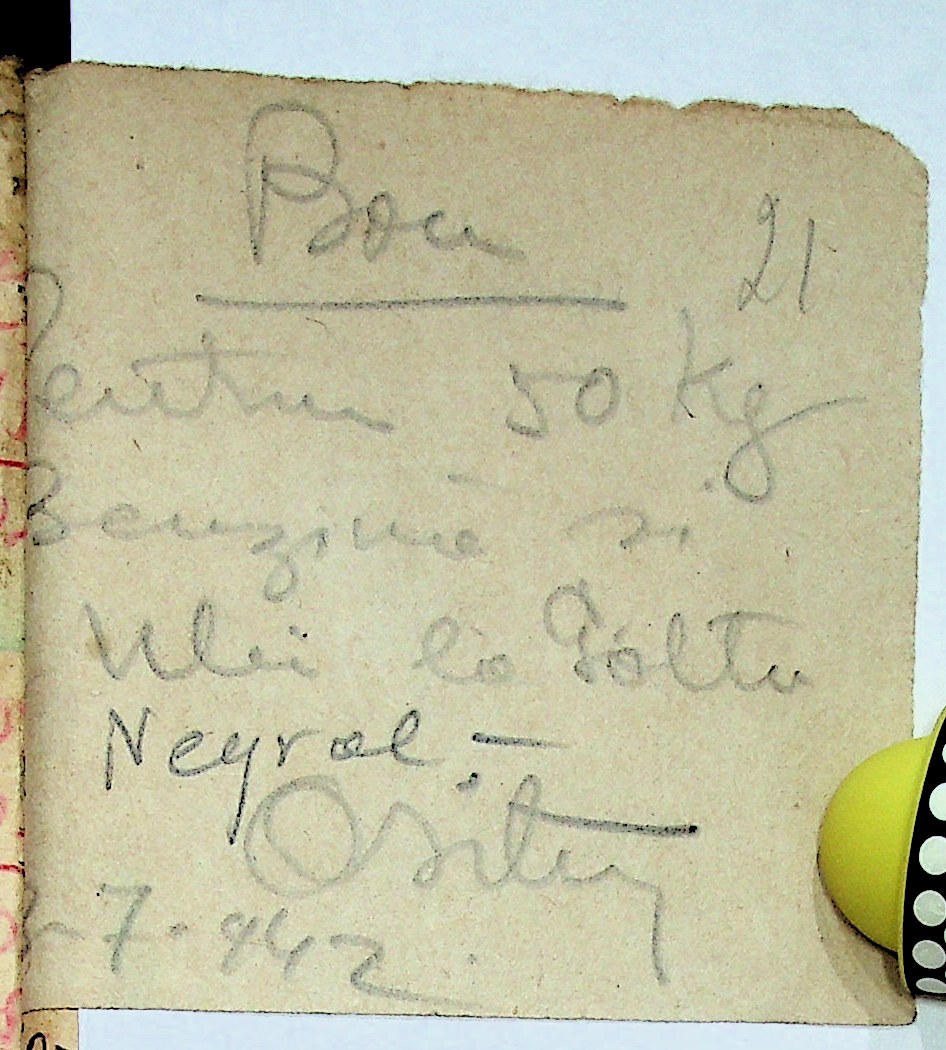 Bon
21
Pentru 50 Kg
Benzină si
Ulei la Baltu
Neyrol —
7.942.